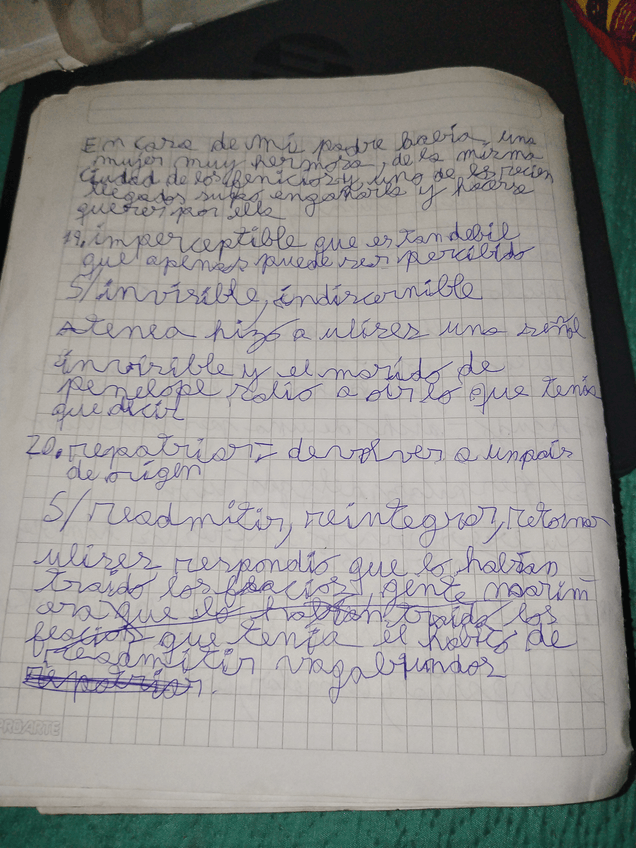 En casa de mi padre habia una
mujer muy hermosa, de la misma
Ciudad de los fenicios y uno de los recien
llegados supo engañarla y hacerse
querer por ella
19. imperceptible que es tan debil
que apenas puede ser percibido
S/ invisible, indiscernible
Atenea hizo a ulises una señal
invisible y el marido de
penelope salio a oir lo que tenia
que decir
20. repatriar = devolver a un pais
de origen
S/ readmitir, reintegrar, retornar
ulises respondió que lo habian
traido los feacios, gente marin
era que lo habian traido los
feacios que tenia el habito de
readmitir vagabundos
repatriar.
PROARTE